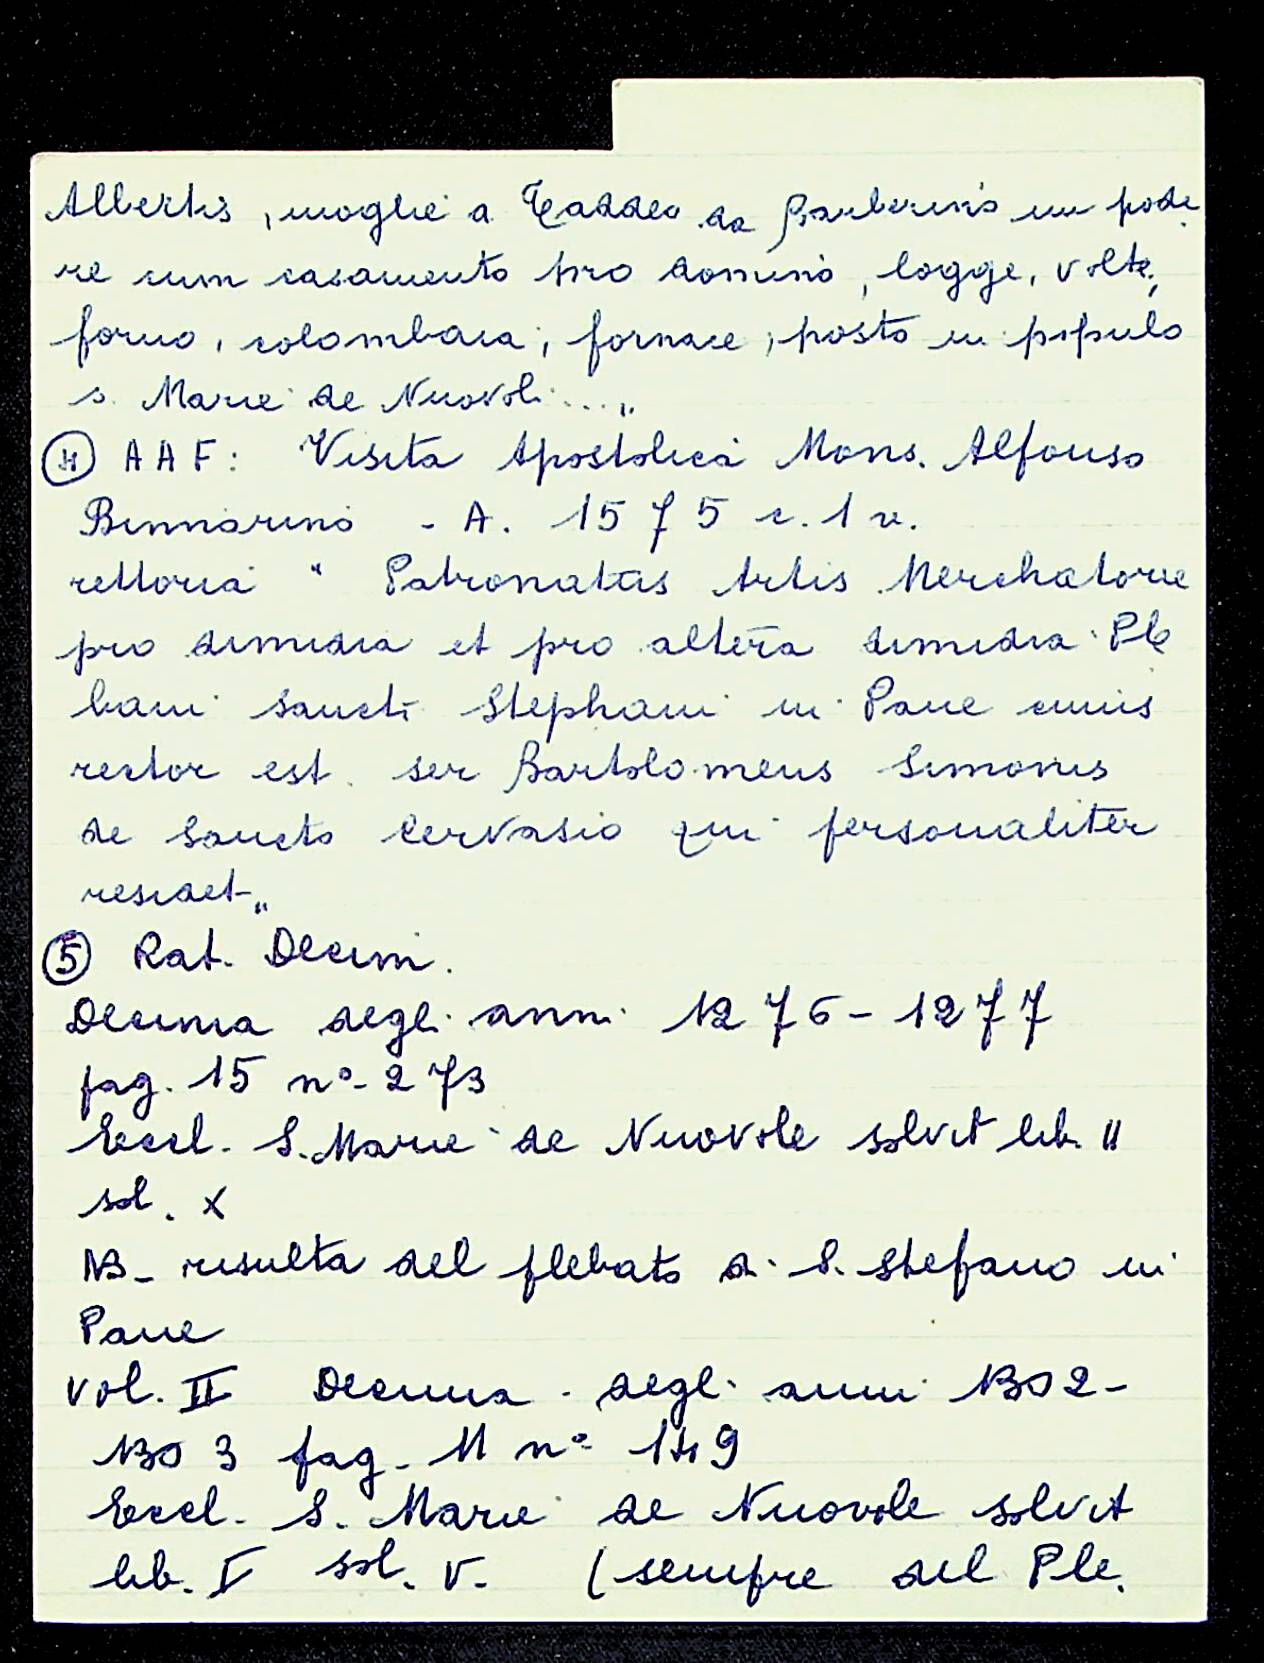 Albertis, moglie a Taddeo da Barberino un pode
re cum casamento pro domino, logge, volte,
forno, colombaia, fornace, posto in populo
s. Marie de Nuovoli...„
④ AAF: Visita Apostolica Mons. Alfonso
Binnarino - A. 1575 c. 1 v.
rettoria " Patronatus Artis Merchatorie
pro dimidia et pro altera dimidia Ple
bani Sancti Stephani in Pane cuius
rector est ser Bartolomeus Simonis
de Sancto Cervasio qui personaliter
residet„
⑤ Rat. Decim.
Decima degli anni 1276-1277
pag. 15 n°- 273
Eccl. S. Marie de Nuovole solvit lib. II
sol. X
NB- risulta del plebato di S. Stefano in
Pane
Vol. II Decima degli anni 1302-
1303 pag. 11 n°- 149
Eccl. S. Marie de Nuovole solvit
lib. I sol. V. (sempre del Ple.